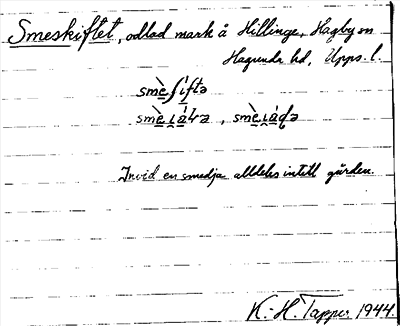 Smeskiftet, odlad mark å Hillinge, Hagby sn
Hagunda hd, Upps. l.
smè̱ʃíftə
Invid en smedja alldeles intill gården.
K.-H. Tapper 1944.